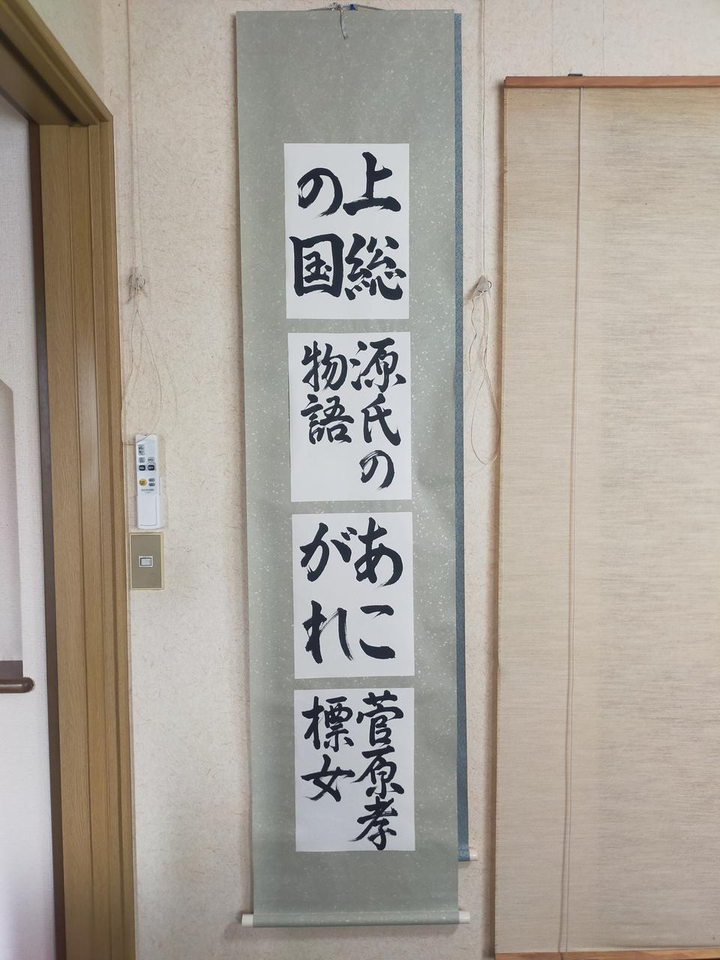 上総
の国
源氏の
物語
あこ
がれ
菅原孝
標女